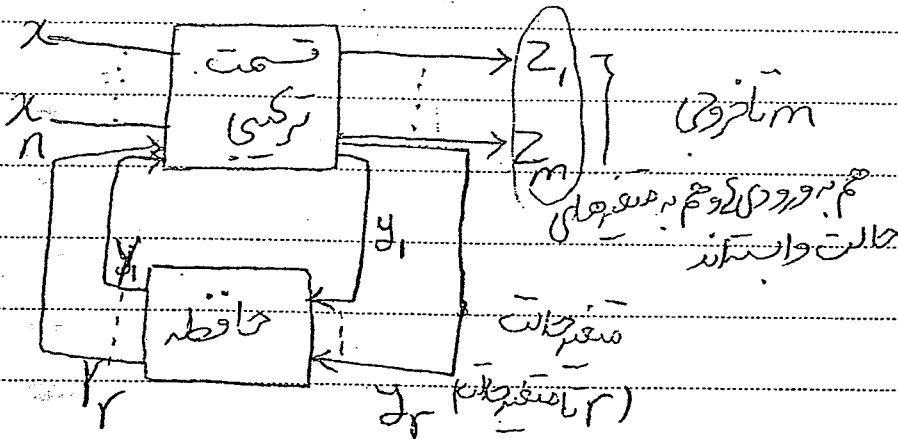 x
قسمت
ترکیبی
x
n
z₁
z
m
m تا خروجی
هم به ورودی و هم به متغیرهای
حالت وابسته‌اند
y₁
y₁
حافظه
متغیر حالت
Yr
yr
(r تا متغیر حالت)